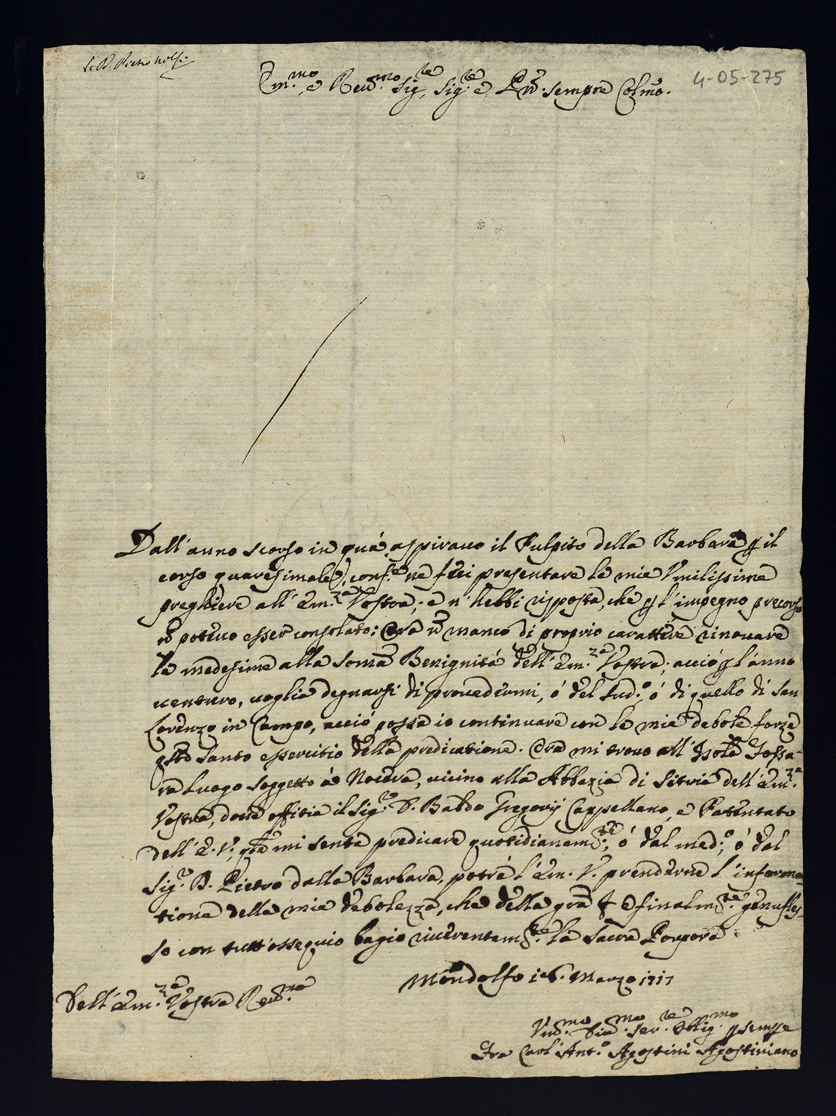 4-05-275
Em.mo, e Reu.mo Sig.re, Sig.re e Pñ. sempre Colmo.
Dall'anno scorso in quà aspirauo il Pulpito della Barbara p il
corso quaresimale, ne feci presentare le mie Vmilissime
preghiere all'Em.za Vostra, e n'hebbi risposta, che p l'impegno precorso
ñ poteuo esser consolato; Ora ñ manco di proprio carattere rinouare
le medesime alla soma Benignità dell'Em.za Vostra; acciò p l'anno
uenturo, uoglia degnarsi di prouedermi, ò del sud.o ò di quello di San
Lorenzo in Campo, acciò possa io continuare con le mie debole forze
qsto santo essercitio della predicatione. Ora mi trouo all'Isola Fossa-
ra luogo soggetto à Nocera, uicino alla Abbazia di Sitria dell'Em.za
Vostra, doue offitia il Sig.r D. Baldo Gregorij Cappellano, e Patentato
dell'E.V. mi sente predicare quotidianam.te, ò dal med.o, ò dal
Sig.r D. Pietro dalla Barbara, potrà l'Em. V. prenderne l'informa-
tione della mia debolezza, che della gra & e finalm.te genufles-
so con tutt'ossequio bagio riuerentem.te la Sacra Porpora
Mondolfo i6. Marzo 1717
Dell'Em.za Vostra Reu.ma
Vm.mo Diu.mo Ser.re Oblig.mo p sempre
Fra Carl'Ant.o Agostini Agostiniano